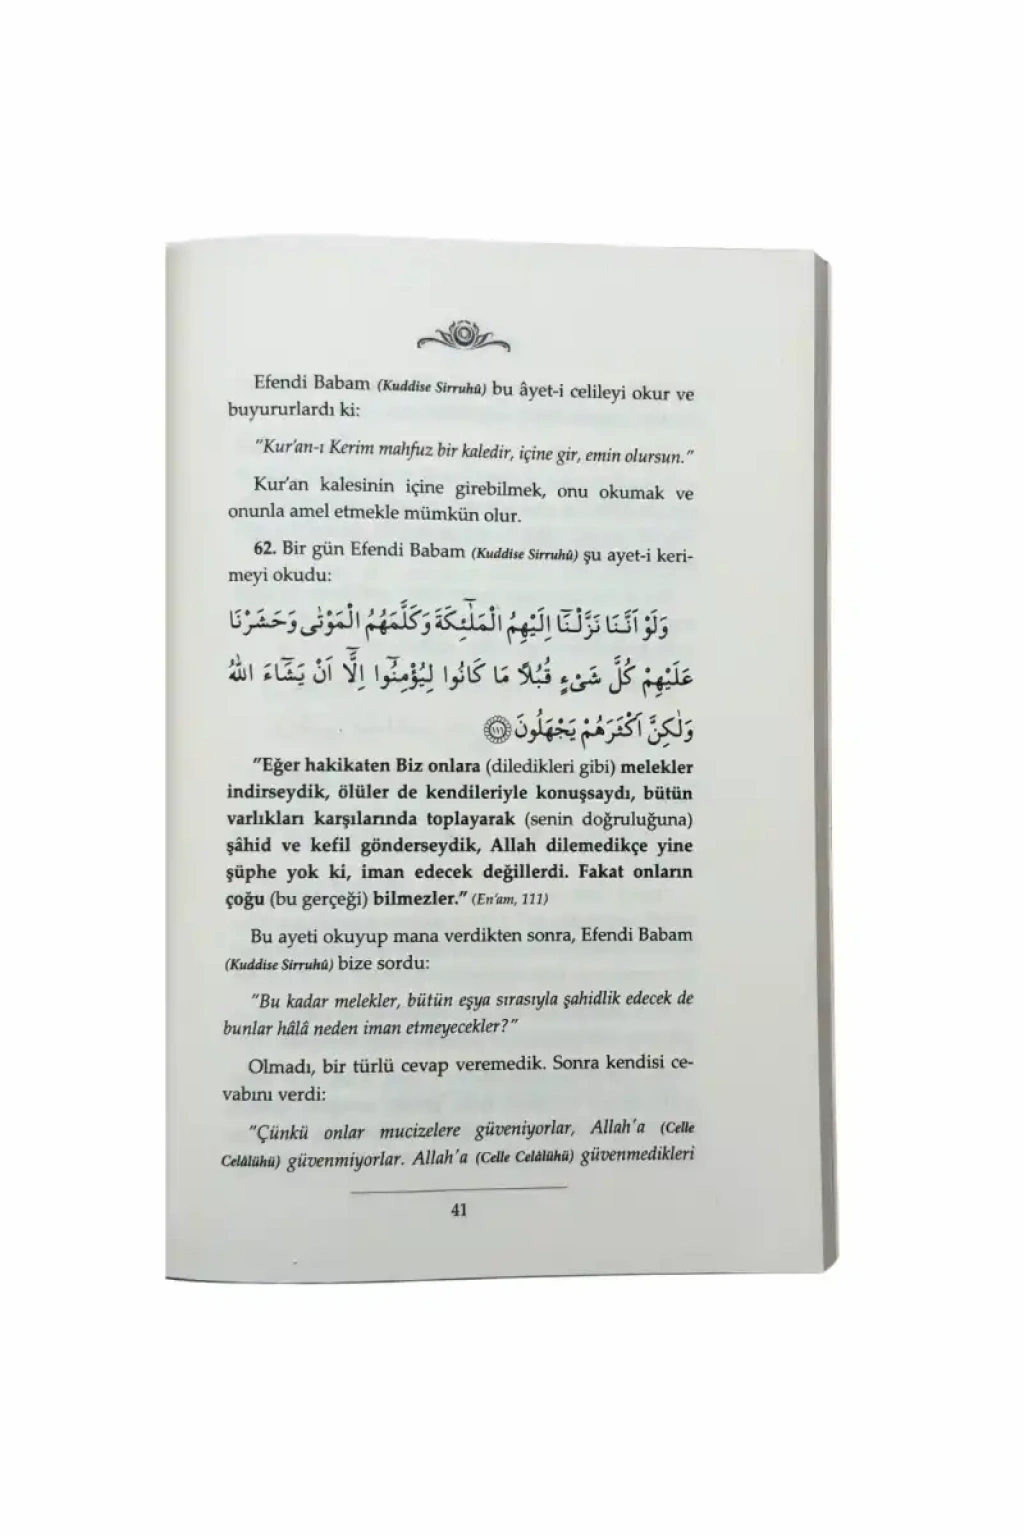 Efendi Babam (Kuddise Sirruhû) bu âyet-i celileyi okur ve
buyururlardı ki:
"Kur'an-ı Kerim mahfuz bir kaledir, içine gir, emin olursun."
Kur'an kalesinin içine girebilmek, onu okumak ve
onunla amel etmekle mümkün olur.
62. Bir gün Efendi Babam (Kuddise Sirruhû) şu ayet-i keri-
meyi okudu:
وَلَوْ اَنَّنَا نَزَّلْنَٓا اِلَيْهِمُ الْمَلٰٓئِكَةَ وَكَلَّمَهُمُ الْمَوْتٰى وَحَشَرْنَا
عَلَيْهِمْ كُلَّ شَيْءٍ قُبُلًا مَا كَانُوا لِيُؤْمِنُٓوا اِلَّٓا اَنْ يَشَٓاءَ اللّٰهُ
وَلٰكِنَّ اَكْثَرَهُمْ يَجْهَلُونَ ﴿١١١﴾
"Eğer hakikaten Biz onlara (diledikleri gibi) melekler
indirseydik, ölüler de kendileriyle konuşsaydı, bütün
varlıkları karşılarında toplayarak (senin doğruluğuna)
şâhid ve kefil gönderseydik, Allah dilemedikçe yine
şüphe yok ki, iman edecek değillerdi. Fakat onların
çoğu (bu gerçeği) bilmezler." (En'am, 111)
Bu ayeti okuyup mana verdikten sonra, Efendi Babam
(Kuddise Sirruhû) bize sordu:
"Bu kadar melekler, bütün eşya sırasıyla şahidlik edecek de
bunlar hâlâ neden iman etmeyecekler?"
Olmadı, bir türlü cevap veremedik. Sonra kendisi ce-
vabını verdi:
"Çünkü onlar mucizelere güveniyorlar, Allah'a (Celle
Celâlühü) güvenmiyorlar. Allah'a (Celle Celâlühü) güvenmedikleri
41